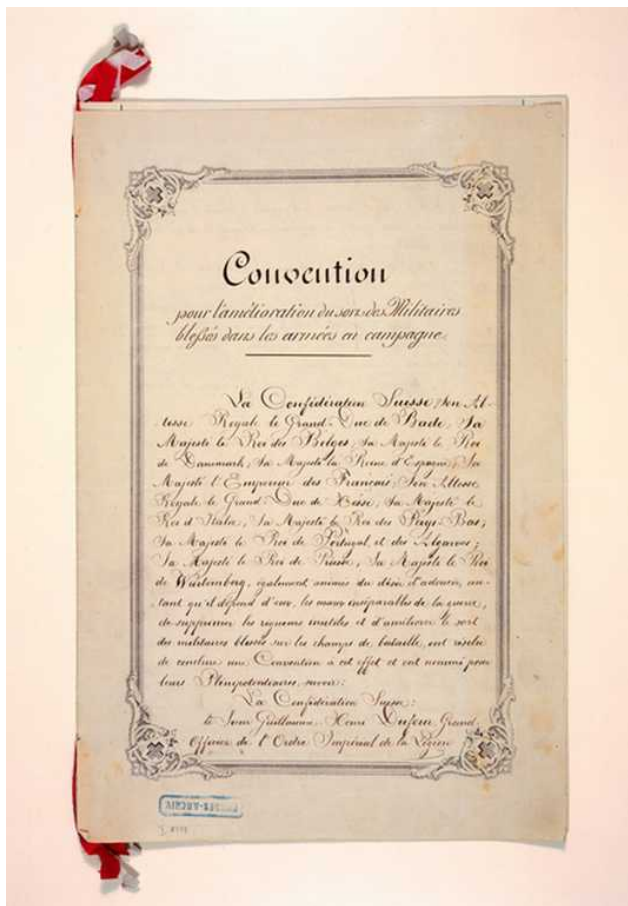 Convention
pour l'amélioration du sort des Militaires
blessés dans les armées en campagne.
La Confédération Suisse; Son Al-
tesse Royale le Grand-Duc de Bade; Sa
Majesté le Roi des Belges; Sa Majesté le Roi
de Danemark; Sa Majesté la Reine d'Espagne; Sa
Majesté l'Empereur des Français; Son Altesse
Royale le Grand-Duc de Hesse; Sa Majesté le
Roi d'Italie; Sa Majesté le Roi des Pays-Bas;
Sa Majesté le Roi de Portugal et des Algarves;
Sa Majesté le Roi de Prusse; Sa Majesté le Roi
de Würtemberg, également animés du désir d'adoucir, au-
tant qu'il dépend d'eux, les maux inséparables de la guerre,
de supprimer les rigueurs inutiles et d'améliorer le sort
des militaires blessés sur les champs de bataille, ont résolu
de conclure une Convention à cet effet et ont nommé pour
leurs Plénipotentiaires, savoir:
La Confédération Suisse:
le Sieur Guillaume-Henri Dufour, Grand
Officier de l'Ordre Impérial de la Légion
BUNDES-ARCHIV